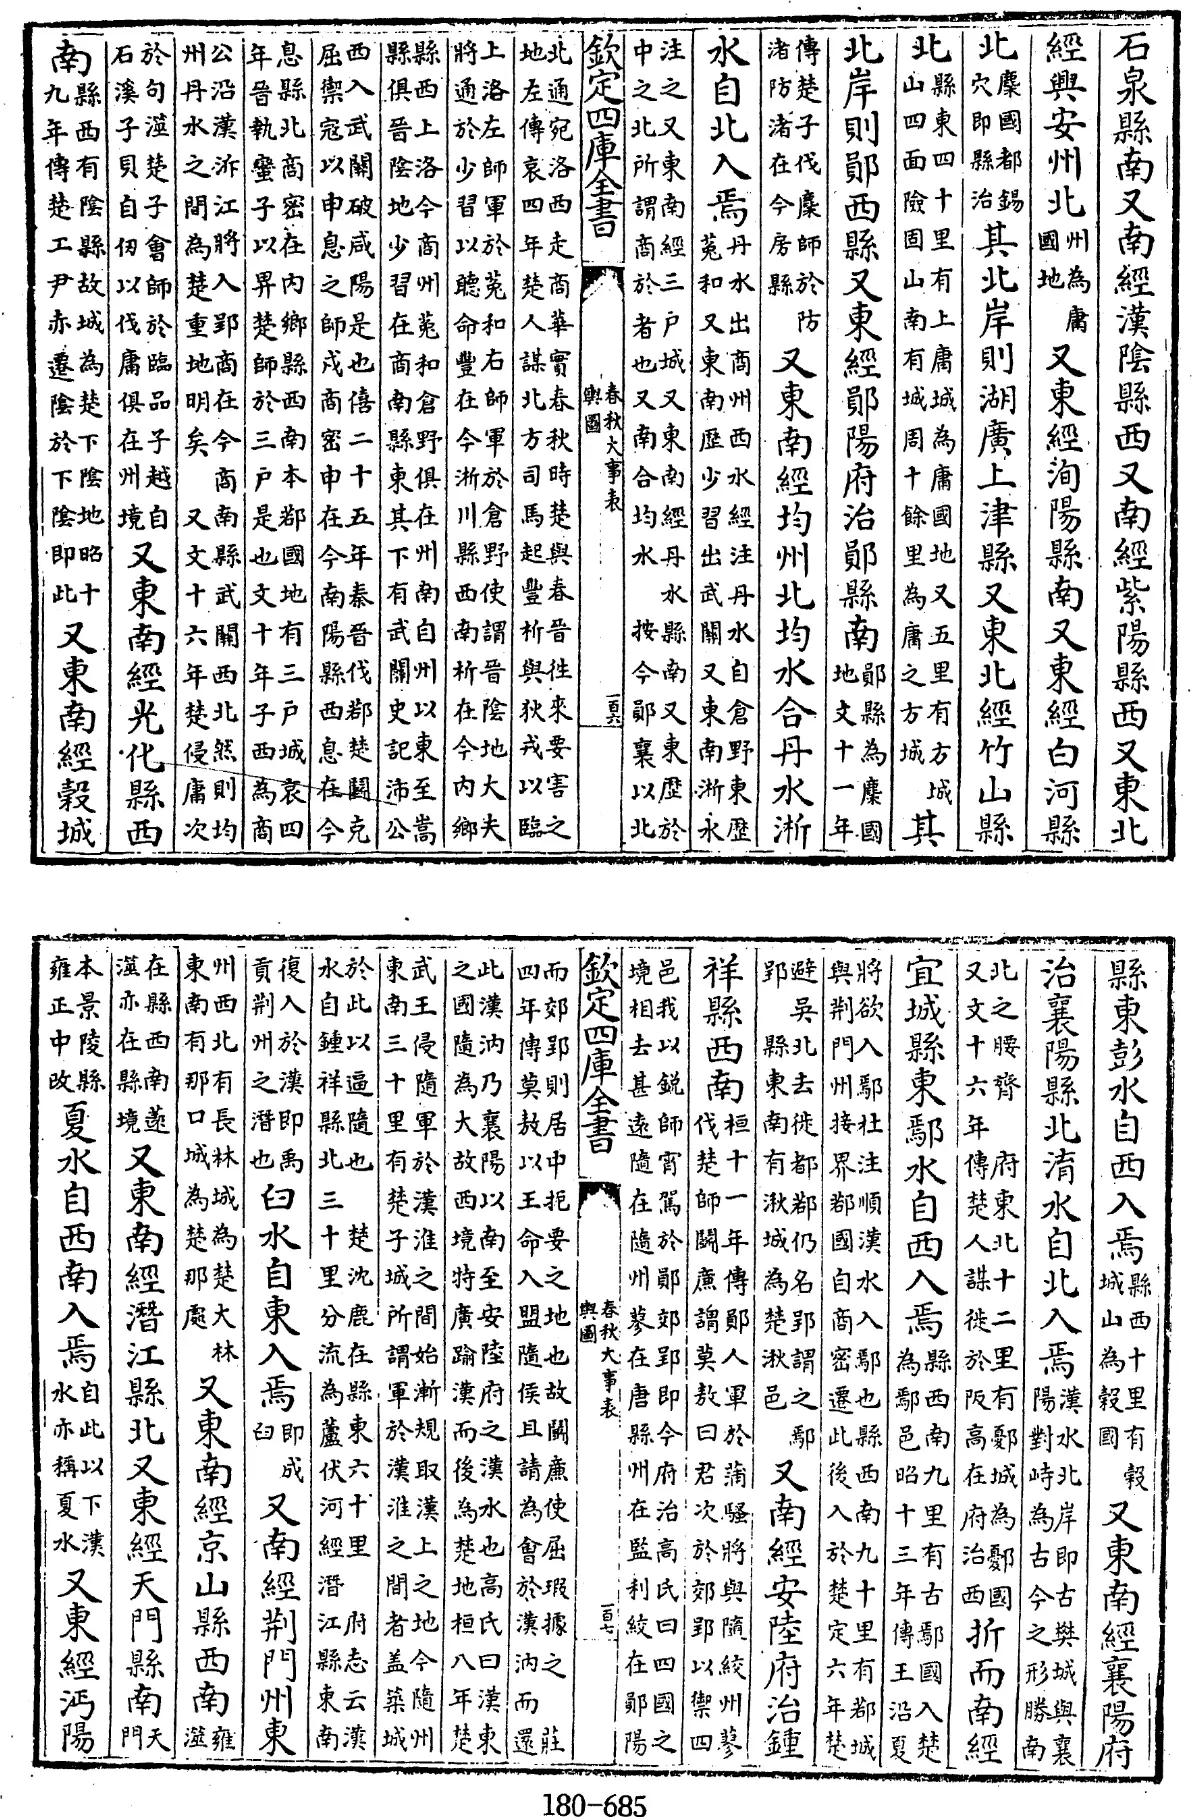 石泉縣南又南經漢陰縣西又南經紫陽縣西又東北
經興安州北州為庸國地又東經洵陽縣南又東經白河縣
北麇國都錫穴即縣治其北岸則湖廣上津縣又東北經竹山縣
北縣東四十里有上庸城為庸國地又五里有方城山四面險固山南有城周十餘里為庸之方城其
北岸則鄖西縣又東經鄖陽府治鄖縣南鄖縣為麇國地文十一年
傳楚子伐麇師於防渚防渚在今房縣又東南經均州北均水合丹水淅
水自北入焉丹水出商州西水經注丹水自倉野東歷菟和又東南歷少習出武關又東南淅水
注之又東南經三戶城又東南經丹水縣南又東歷於中之北所謂商於者也又南合均水 按今鄖襄以北
欽定四庫全書 春秋大事表 輿圖 一百六
北通宛洛西走商華實春秋時楚與春晉徃來要害之地左傳哀四年楚人謀北方司馬起豐析與狄戎以臨
上洛左師軍於菟和右師軍於倉野使謂晉陰地大夫將通於少習以聽命豐在今淅川縣西南析在今内鄉
縣西上洛今商州菟和倉野俱在州南自州以東至嵩縣俱晉陰地少習在商南縣東其下有武關史記沛公
西入武關破咸陽是也僖二十五年秦晉伐鄀楚鬭克屈禦寇以申息之師戍商密申在今南陽縣西息在今
息縣北商密在内鄉縣西南本鄀國地有三戶城哀四年晉執蠻子以畀楚師於三戶是也文十年子西為商
公沿漢泝江將入郢商在今商南縣武關西北然則均州丹水之間為楚重地明矣 又文十六年楚侵庸次
於句澨楚子會師於臨品子越自石溪子貝自仞以伐庸俱在州境又東南經光化縣西
南縣西有陰縣故城為楚下陰地昭十九年傳楚工尹赤遷陰於下陰即此又東南經穀城
縣東彭水自西入焉縣西十里有穀城山為穀國又東南經襄陽府
治襄陽縣北淯水自北入焉漢水北岸即古樊城與襄陽對峙為古今之形勝南
北之腰膂 府東北十二里有鄾城為鄾國又文十六年傳楚人謀徙於阪高在府治西折而南經
宜城縣東鄢水自西入焉縣西南九里有古鄢國入楚為鄢邑昭十三年傳王沿夏
將欲入鄢杜注順漢水入鄢也縣西南九十里有鄀城與荆門州接界鄀國自商密遷此後入於楚定六年楚
避吳北去徙都鄀仍名郢謂之鄢郢 縣東南有湫城為楚湫邑又南經安陸府治鍾
祥縣西南桓十一年傳鄖人軍於蒲騷將與隨絞州蓼伐楚師鬭廉謂莫敖曰君次於郊郢以禦四
邑我以銳師宵駕於鄖郊郢即今府治高氏曰四國之境相去甚遠隨在隨州蓼在唐縣州在監利絞在鄖陽
欽定四庫全書 春秋大事表 輿圖 一百七
而郊郢則居中扼要之地也故鬭廉使屈瑕據之 莊四年傳莫敖以王命入盟隨侯且請為會於漢汭而還
此漢汭乃襄陽以南至安陸府之漢水也高氏曰漢東之國隨為大故西境特廣踰漢而後為楚地桓八年楚
武王侵隨軍於漢淮之間始漸規取漢上之地今隨州東南三十里有楚子城所謂軍於漢淮之間者蓋築城
於此以逼隨也 楚沈鹿在縣東六十里 府志云漢水自鍾祥縣北三十里分流為蘆伏河經潛江縣東南
復入於漢即禹貢荆州之潛也臼水自東入焉即成臼又南經荆門州東
州西北有長林城為楚大林東南有那口城為楚那處又東南經京山縣西南雍澨
在縣西南薳澨亦在縣境又東南經潛江縣北又東經天門縣南天門
本景陵縣雍正中改夏水自西南入焉自此以下漢水亦稱夏水又東經沔陽
180-685